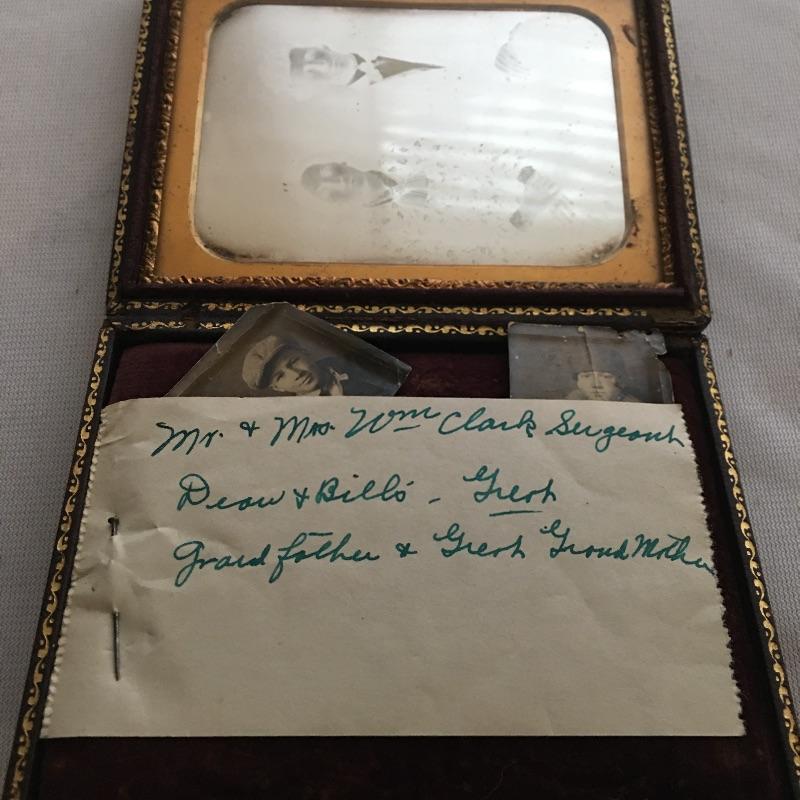 Mr. & Mrs. Wm Clark Sergeant
Dean & Bill's - Great
Grandfather & Great Grand Mother